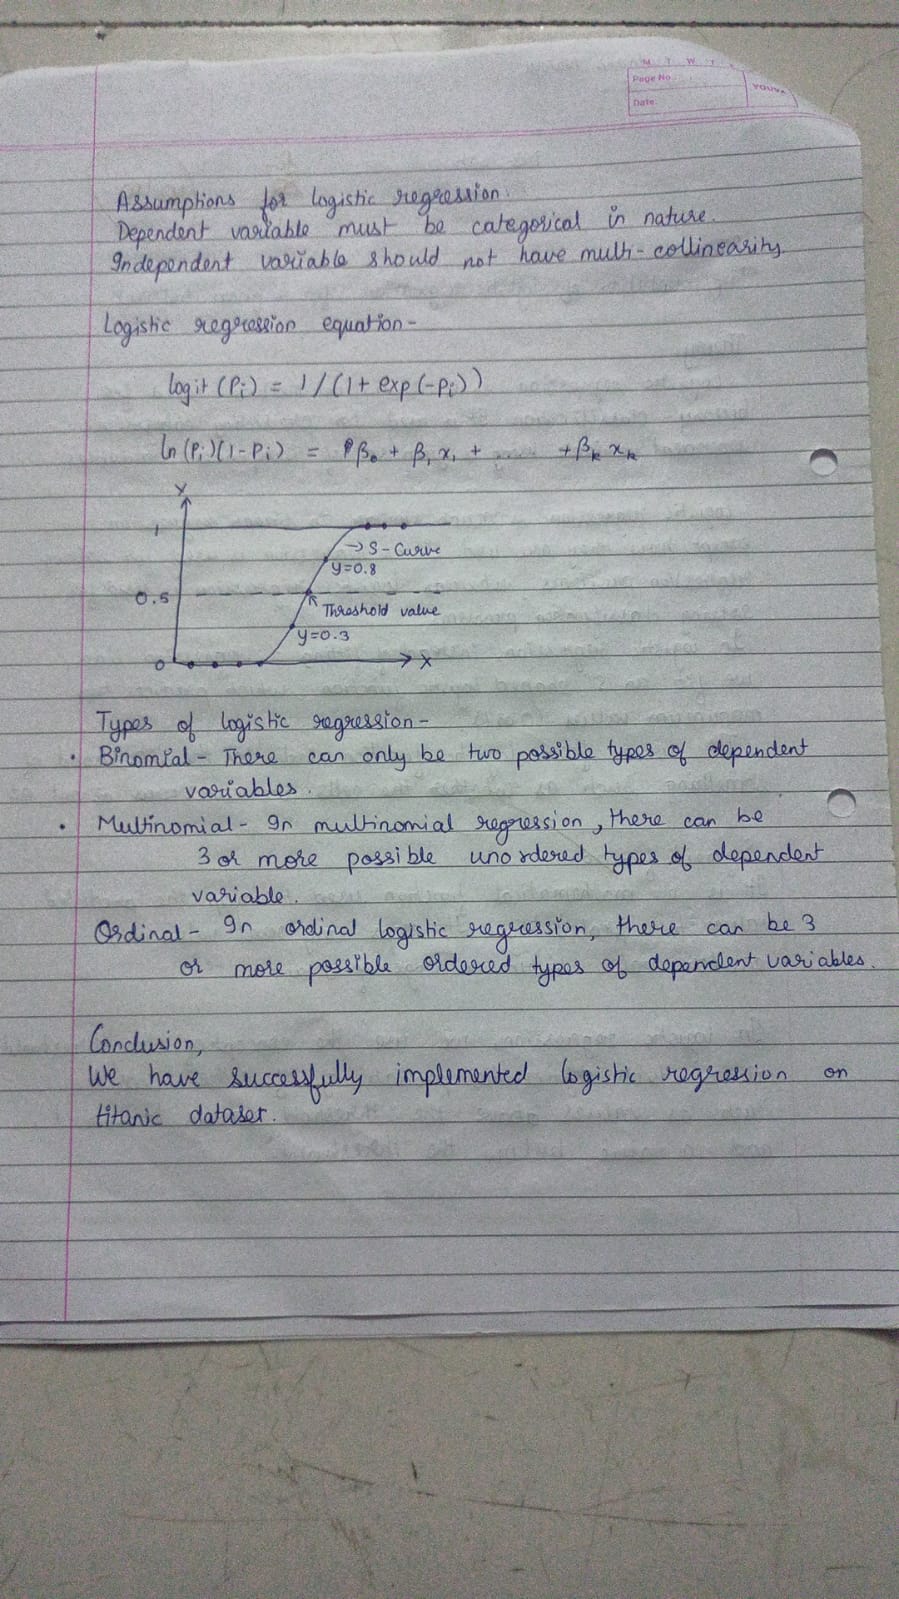 M T W T
Page No.:
Date:
YOUVA
Assumptions for logistic regression.
Dependent variable must be categorical in nature.
Independent variable should not have multi-collinearity.
Logistic regression equation-
logit(Pi) = 1/(1+ exp(-Pi))
ln(Pi)(1-Pi) = β0 + β1 x1 + ...... + βk xk
Y
1
→ S-Curve
y=0.8
0.5
Threshold value
y=0.3
0
X
Types of logistic regression-
• Binomial - There can only be two possible types of dependent
variables.
• Multinomial - In multinomial regression, there can be
3 or more possible unordered types of dependent
variable.
Ordinal - In ordinal logistic regression, there can be 3
or more possible ordered types of dependent variables.
Conclusion,
We have successfully implemented logistic regression on
titanic dataset.